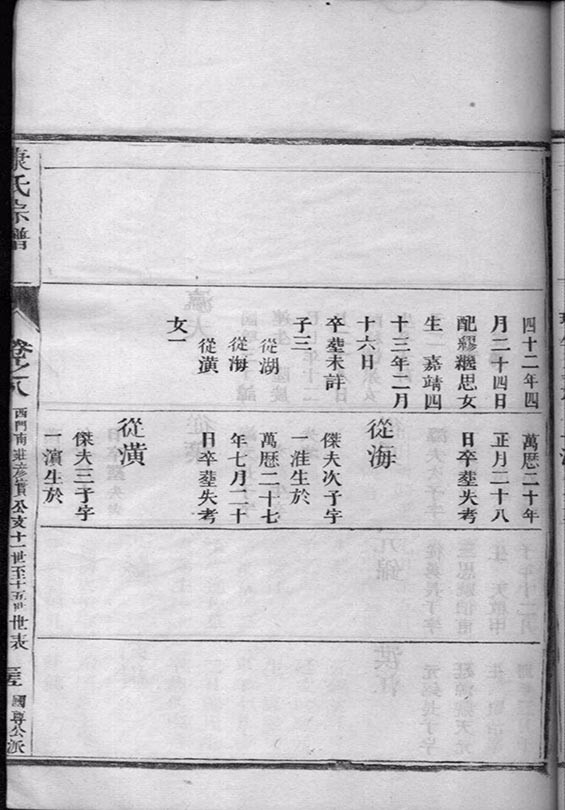 四十二年四
月二十四日
配繆繼思女
生　嘉靖四
十三年二月
十六日
卒塟未註
子三
從湖
從海
從潢
女一
萬厯二十年
正月二十八
日卒塟失考
從海
傑夫次子字
一淮生於
萬厯二十七
年七月二十
日卒塟失考
從潢
傑夫三子字
一濵生於
康氏宗譜
卷之八
西門南莊彥賓公支十一世至十五世世表
國尊公派